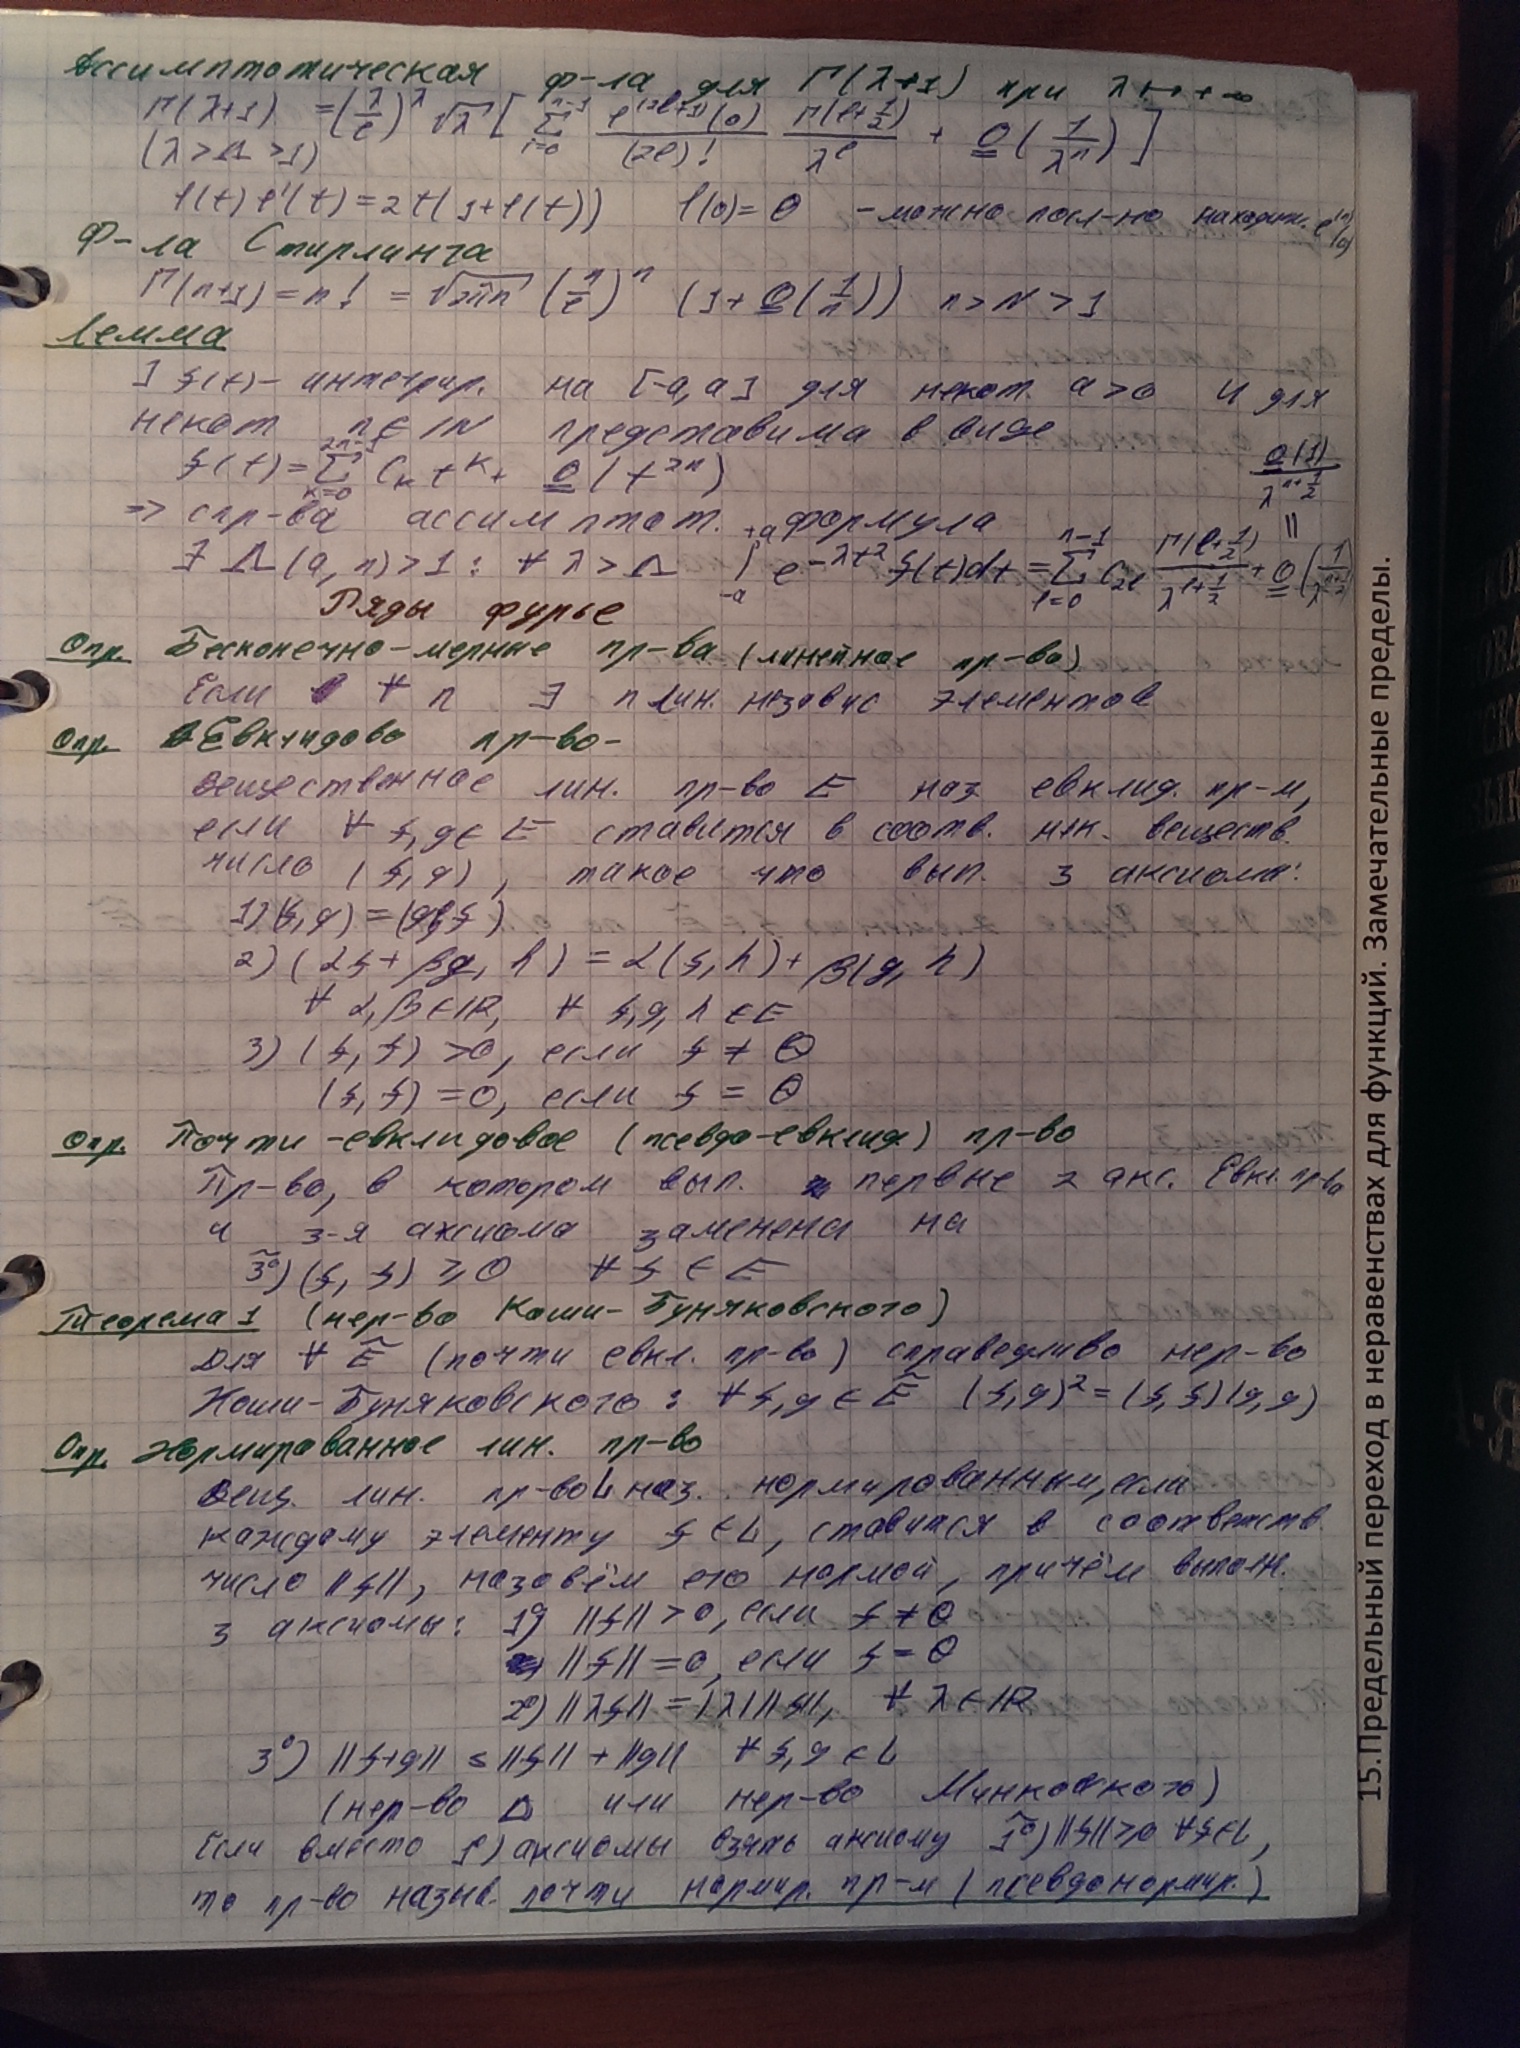 Ассимптотическая ф-ла для Γ(λ+1) при λ→+∞
Γ(λ+1) = (λ/e)^λ √λ [ Σ_{l=0}^{n-1} l^{(2l+1)}(0)/(2l)! Γ(l+1/2)/λ^l + O(1/λ^n) ]
(λ > Λ > 1)
l(t) l'(t) = 2t(1+l(t)) l(0) = 0 - можно посл-но находить l^{(n)}(0)
Ф-ла Стирлинга
Γ(n+1) = n! = √2πn (n/e)^n (1 + O(1/n)) n > N > 1
Лемма
] f(t) - интегрир. на [-a, a] для некот. a>0 и для
некот n ∈ IN представима в виде
f(t) = Σ_{k=0}^{2n-1} C_k t^k + O(t^{2n})
O(1)/λ^{n+1/2}
=> спр-ва ассимптот. формула
∃ Λ(a, n) > 1 : ∀ λ > Λ ∫_{-a}^{+a} e^{-λt²} f(t)dt = Σ_{l=0}^{n-1} C_{2l} Γ(l+1/2)/λ^{l+1/2} + O(1/λ^{n+1/2})
Ряды фурье
Опр. Бесконечно-мерные пр-ва (линейное пр-во)
Если ∀ n ∃ n лин. независ элементов
Опр. Евклидово пр-во -
вещественное лин. пр-во E наз. евклид. пр-м,
если ∀ f, g ∈ E ставится в соотв. нек. веществ.
число (f, g), такое что вып. 3 аксиомы:
1) (f, g) = (g, f)
2) (αf + βg, h) = α(f, h) + β(g, h)
∀ α, β ∈ IR, ∀ f, g, h ∈ E
3) (f, f) > 0, если f ≠ Θ
(f, f) = 0, если f = Θ
Опр. Почти-евклидовое (псевдо-евклид) пр-во
Пр-во, в котором вып. первые 2 акс. Евкл. пр-ва
и 3-я аксиома заменена на
3̃°) (f, f) ≥ 0 ∀ f ∈ E
Теорема 1 (нер-во Коши-Буняковского)
Для ∀ Ẽ (почти евкл. пр-во) справедливо нер-во
Коши-Буняковского : ∀ f, g ∈ Ẽ (f, g)² = (f, f)(g, g)
Опр. Нормированное лин. пр-во
Вещ. лин. пр-во L наз. нормированным, если
каждому элементу f ∈ L, ставится в соответств.
число ||f||, назовём его нормой, причём выполн.
3 аксиомы: 1°) ||f|| > 0, если f ≠ Θ
||f|| = 0, если f = Θ
2°) ||λf|| = |λ| ||f||, ∀ λ ∈ IR
3°) ||f+g|| ≤ ||f|| + ||g|| ∀ f, g ∈ L
(нер-во Δ или нер-во Минковского)
Если вместо 1) аксиомы взять аксиому 1̃°) ||f|| ≥ 0 ∀ f ∈ L,
то пр-во назыв. почти нормир. пр-м (псевдонормир.)
15.Предельный переход в неравенствах для функций. Замечательные пределы.